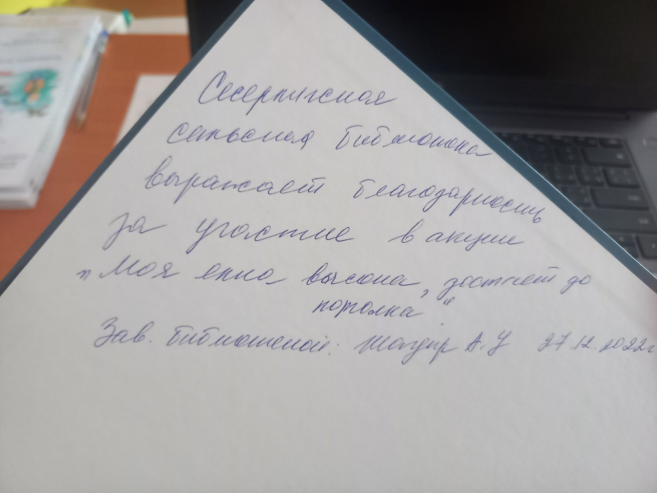 сельская библиотека
выражает благодарность
за участие в акции
„Моя елка высока, достает до
потолка“.
Зав. библиотекой: А. У 27.12.2022г